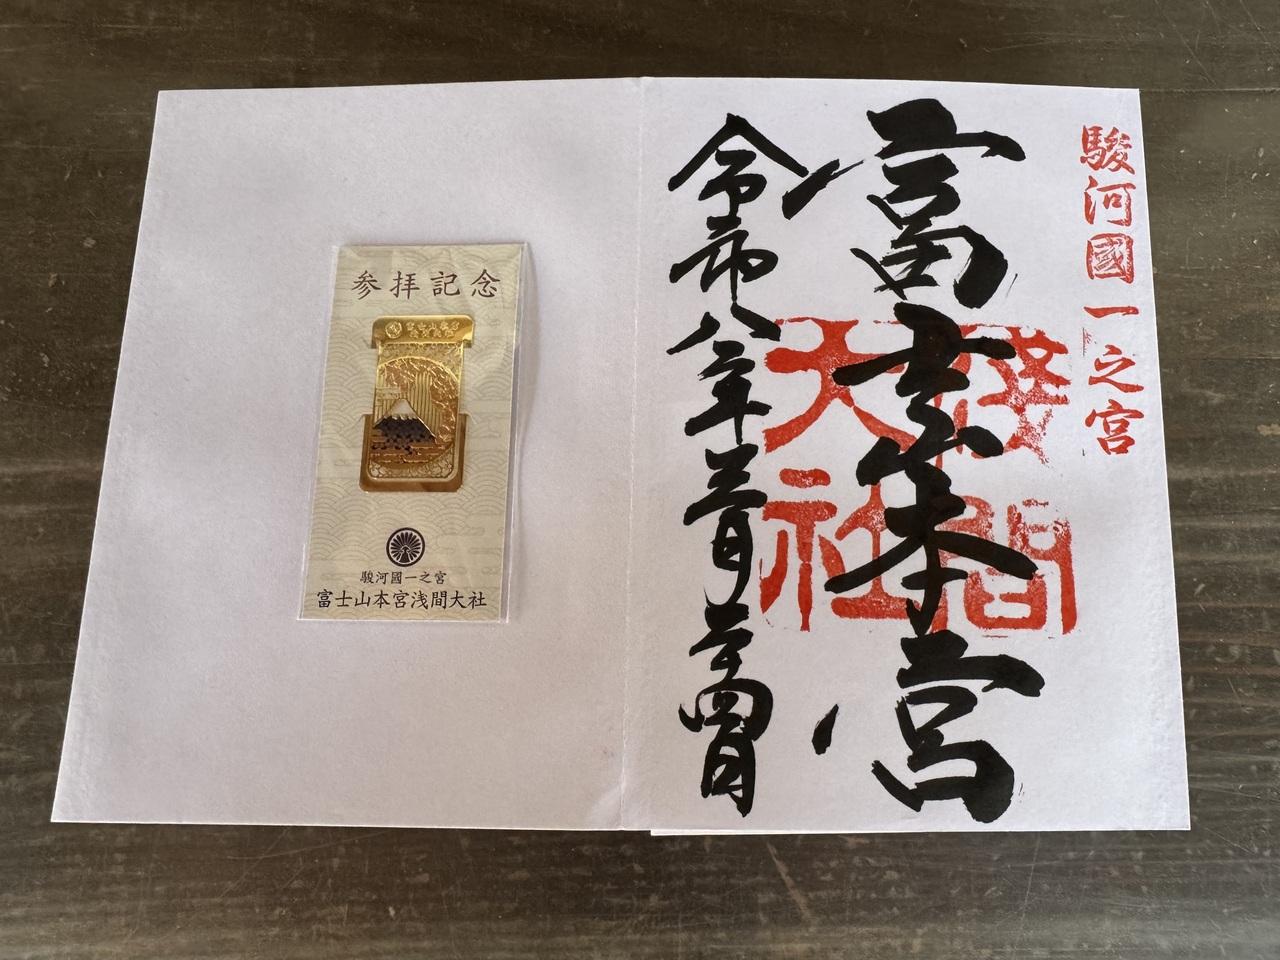 駿河國一之宮
富士山本宮
淺間
大社
令和八年三月二十四日
参拝記念
駿河國一之宮
富士山本宮浅間大社